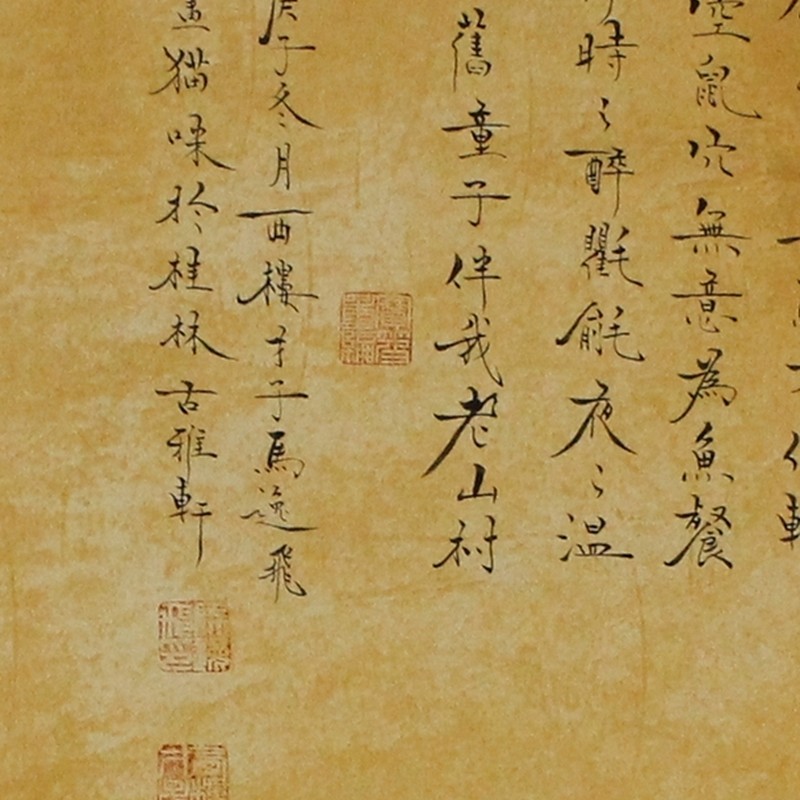 空鼠穴無意為魚餐
時々醉氍毹夜々温
舊童子伴我老山村
庚子冬月西樓才子馬逸飛
畫猫咪於桂林古雅軒